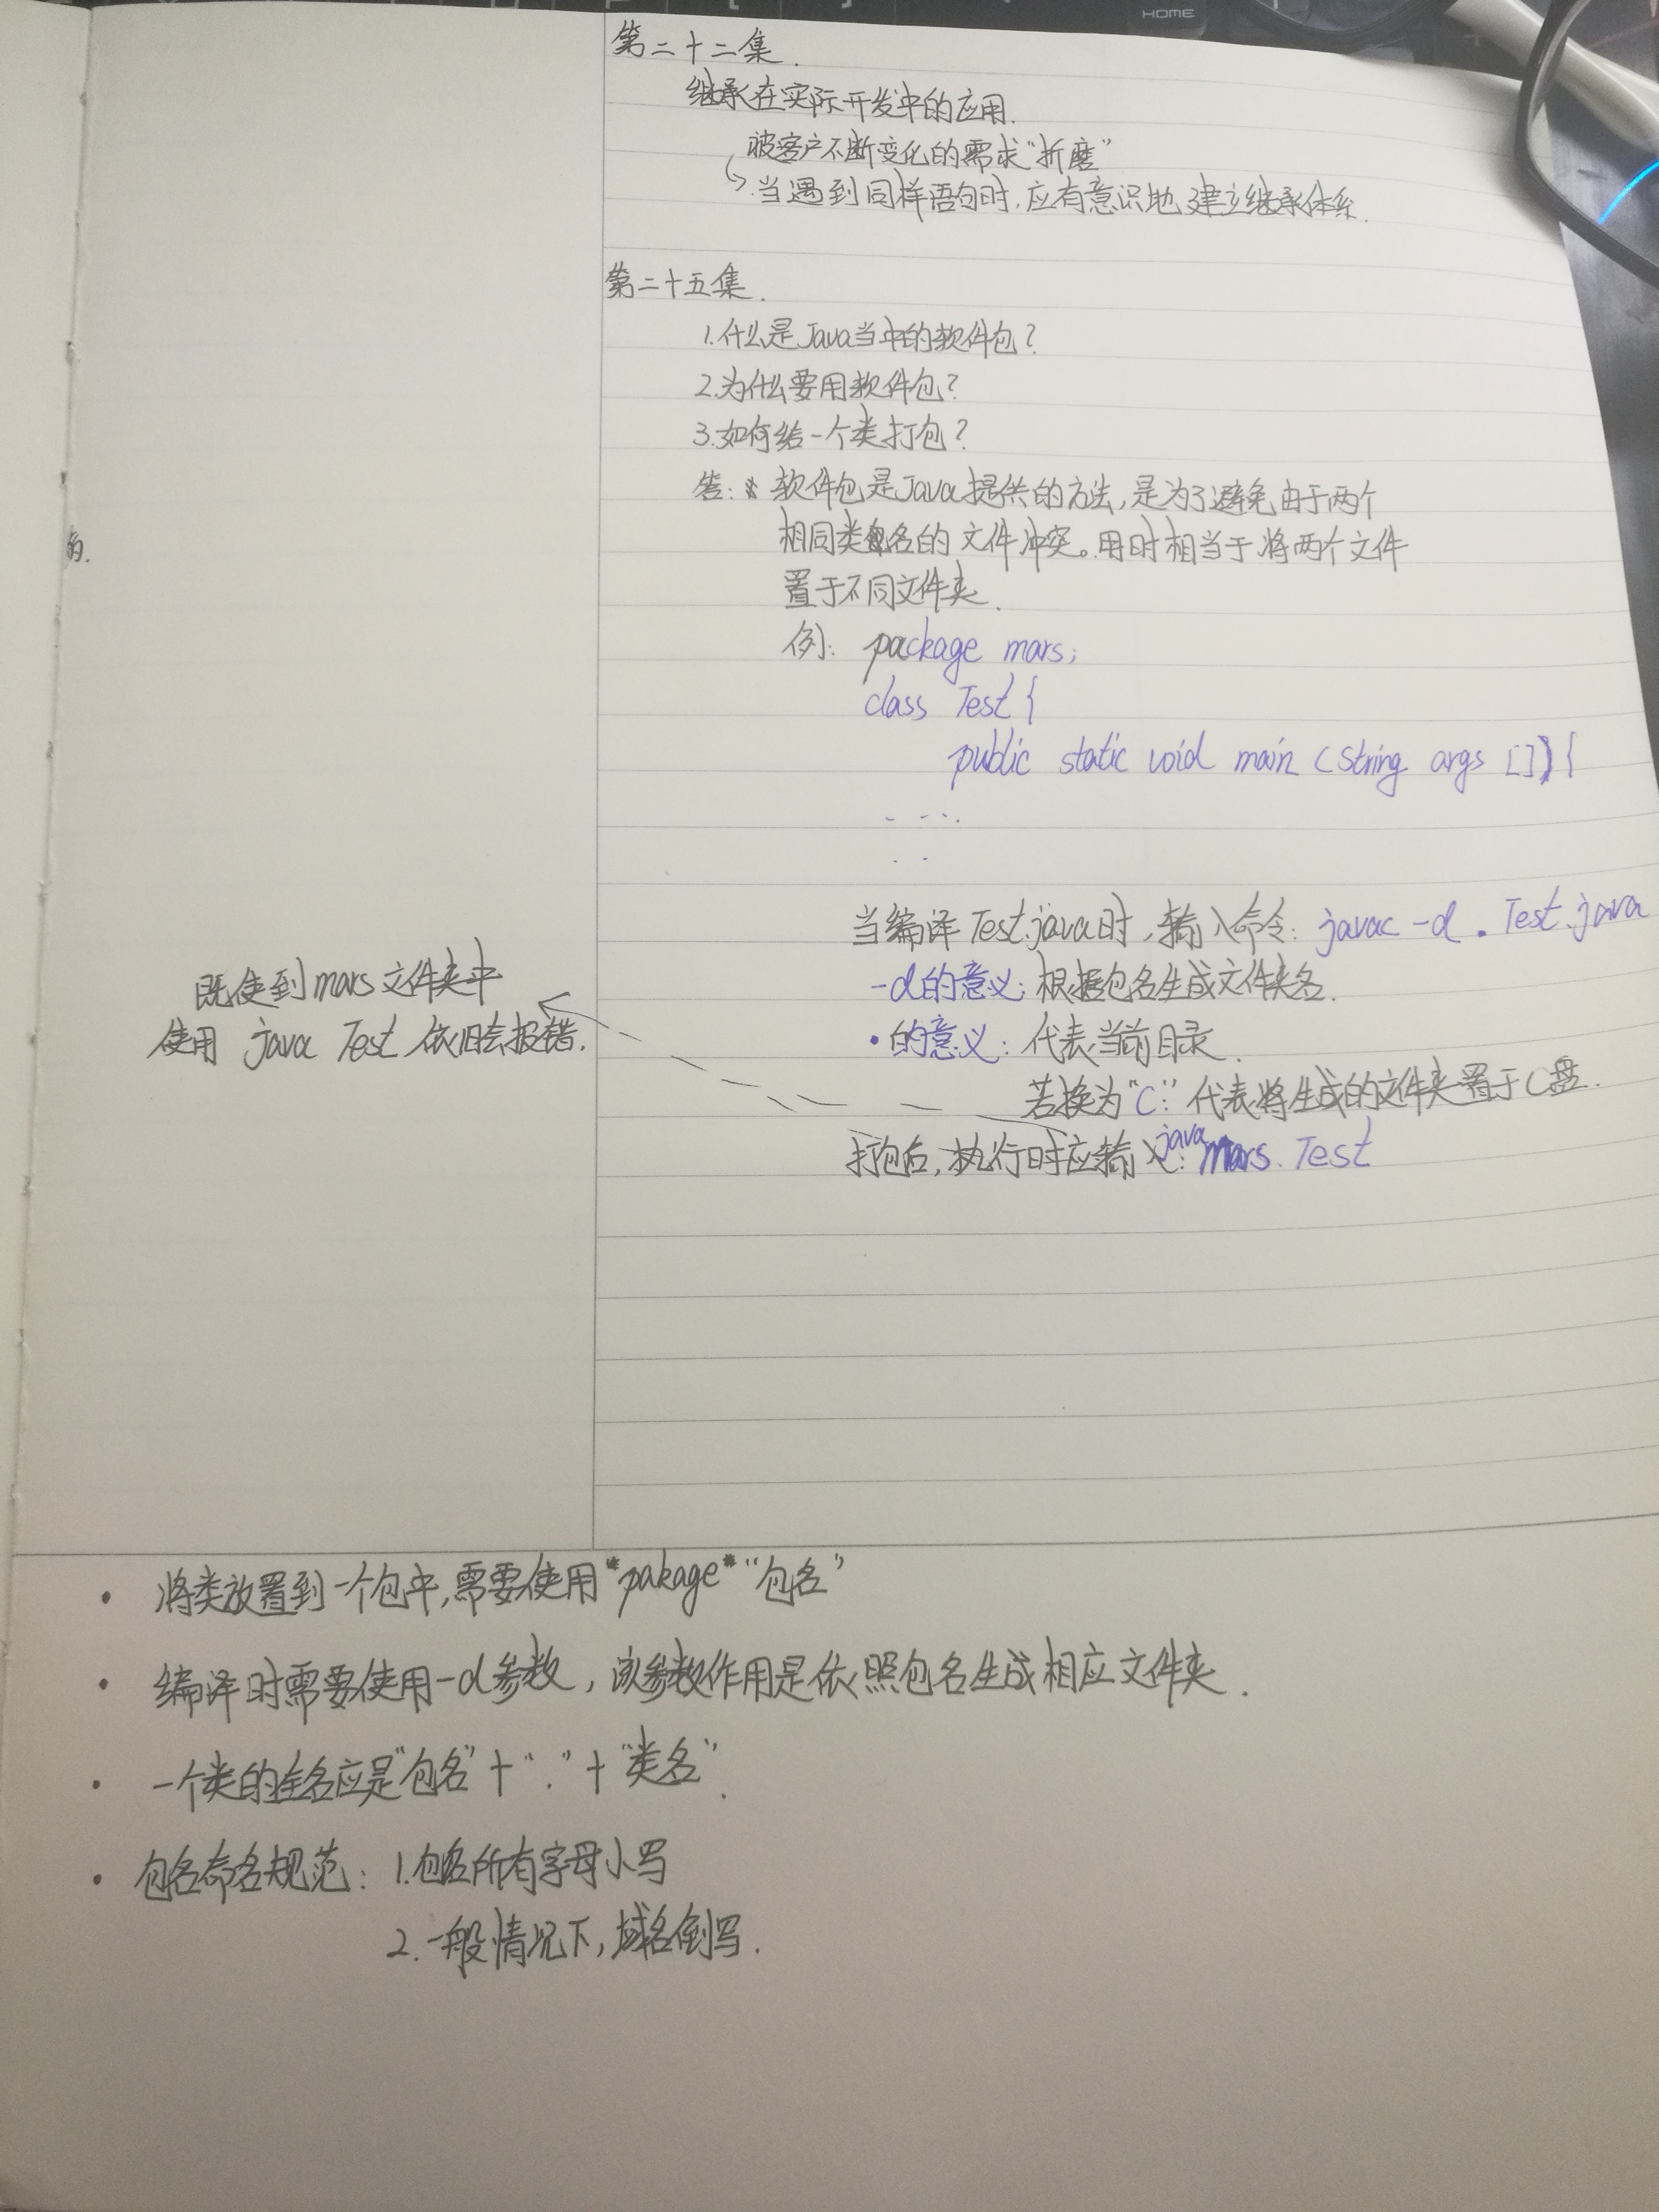 HOME
第二十二集.
继承在实际开发中的应用.
被客户不断变化的需求“折磨”
当遇到同样语句时,应有意识地建立继承体系.
第二十五集.
1.什么是Java当中的软件包?
2.为什么要用软件包?
3.如何给一个类打包?
答: 软件包是Java提供的方法,是为了避免由于两个
相同类名的文件冲突。用时相当于将两个文件
置于不同文件夹.
例: package mars;
class Test {
public static void main (String args []) {
的.
当编译Test.java时,输入命令: javac -d . Test.java
-d的意义: 根据包名生成文件夹名.
•的意义: 代表当前目录.
若换为“C:” 代表将生成的文件夹置于C盘.
打包后,执行时应输入: java mars.Test
既使到mars文件夹中
使用 java Test 依旧会报错.
• 将类放置到一个包中,需要使用*pakage* “包名”
• 编译时需要使用-d参数, 该参数作用是依照包名生成相应文件夹.
• 一个类的全名应是“包名”+“.”+“类名”.
• 包名命名规范: 1.包名所有字母小写
2.一般情况下,域名倒写.